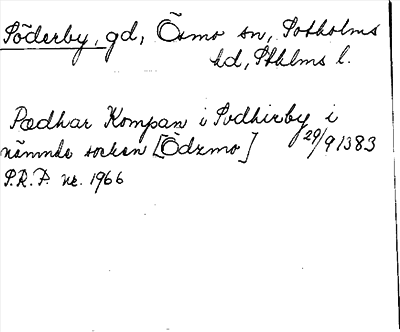 Söderby, gd, Ösmo sn, Sotholms
hd, Sthlms l.
Pædhar Kompan i Sudhirby i
nämnda socken [Ödzmo] 29/9 1383
S.R.P. nr. 1966